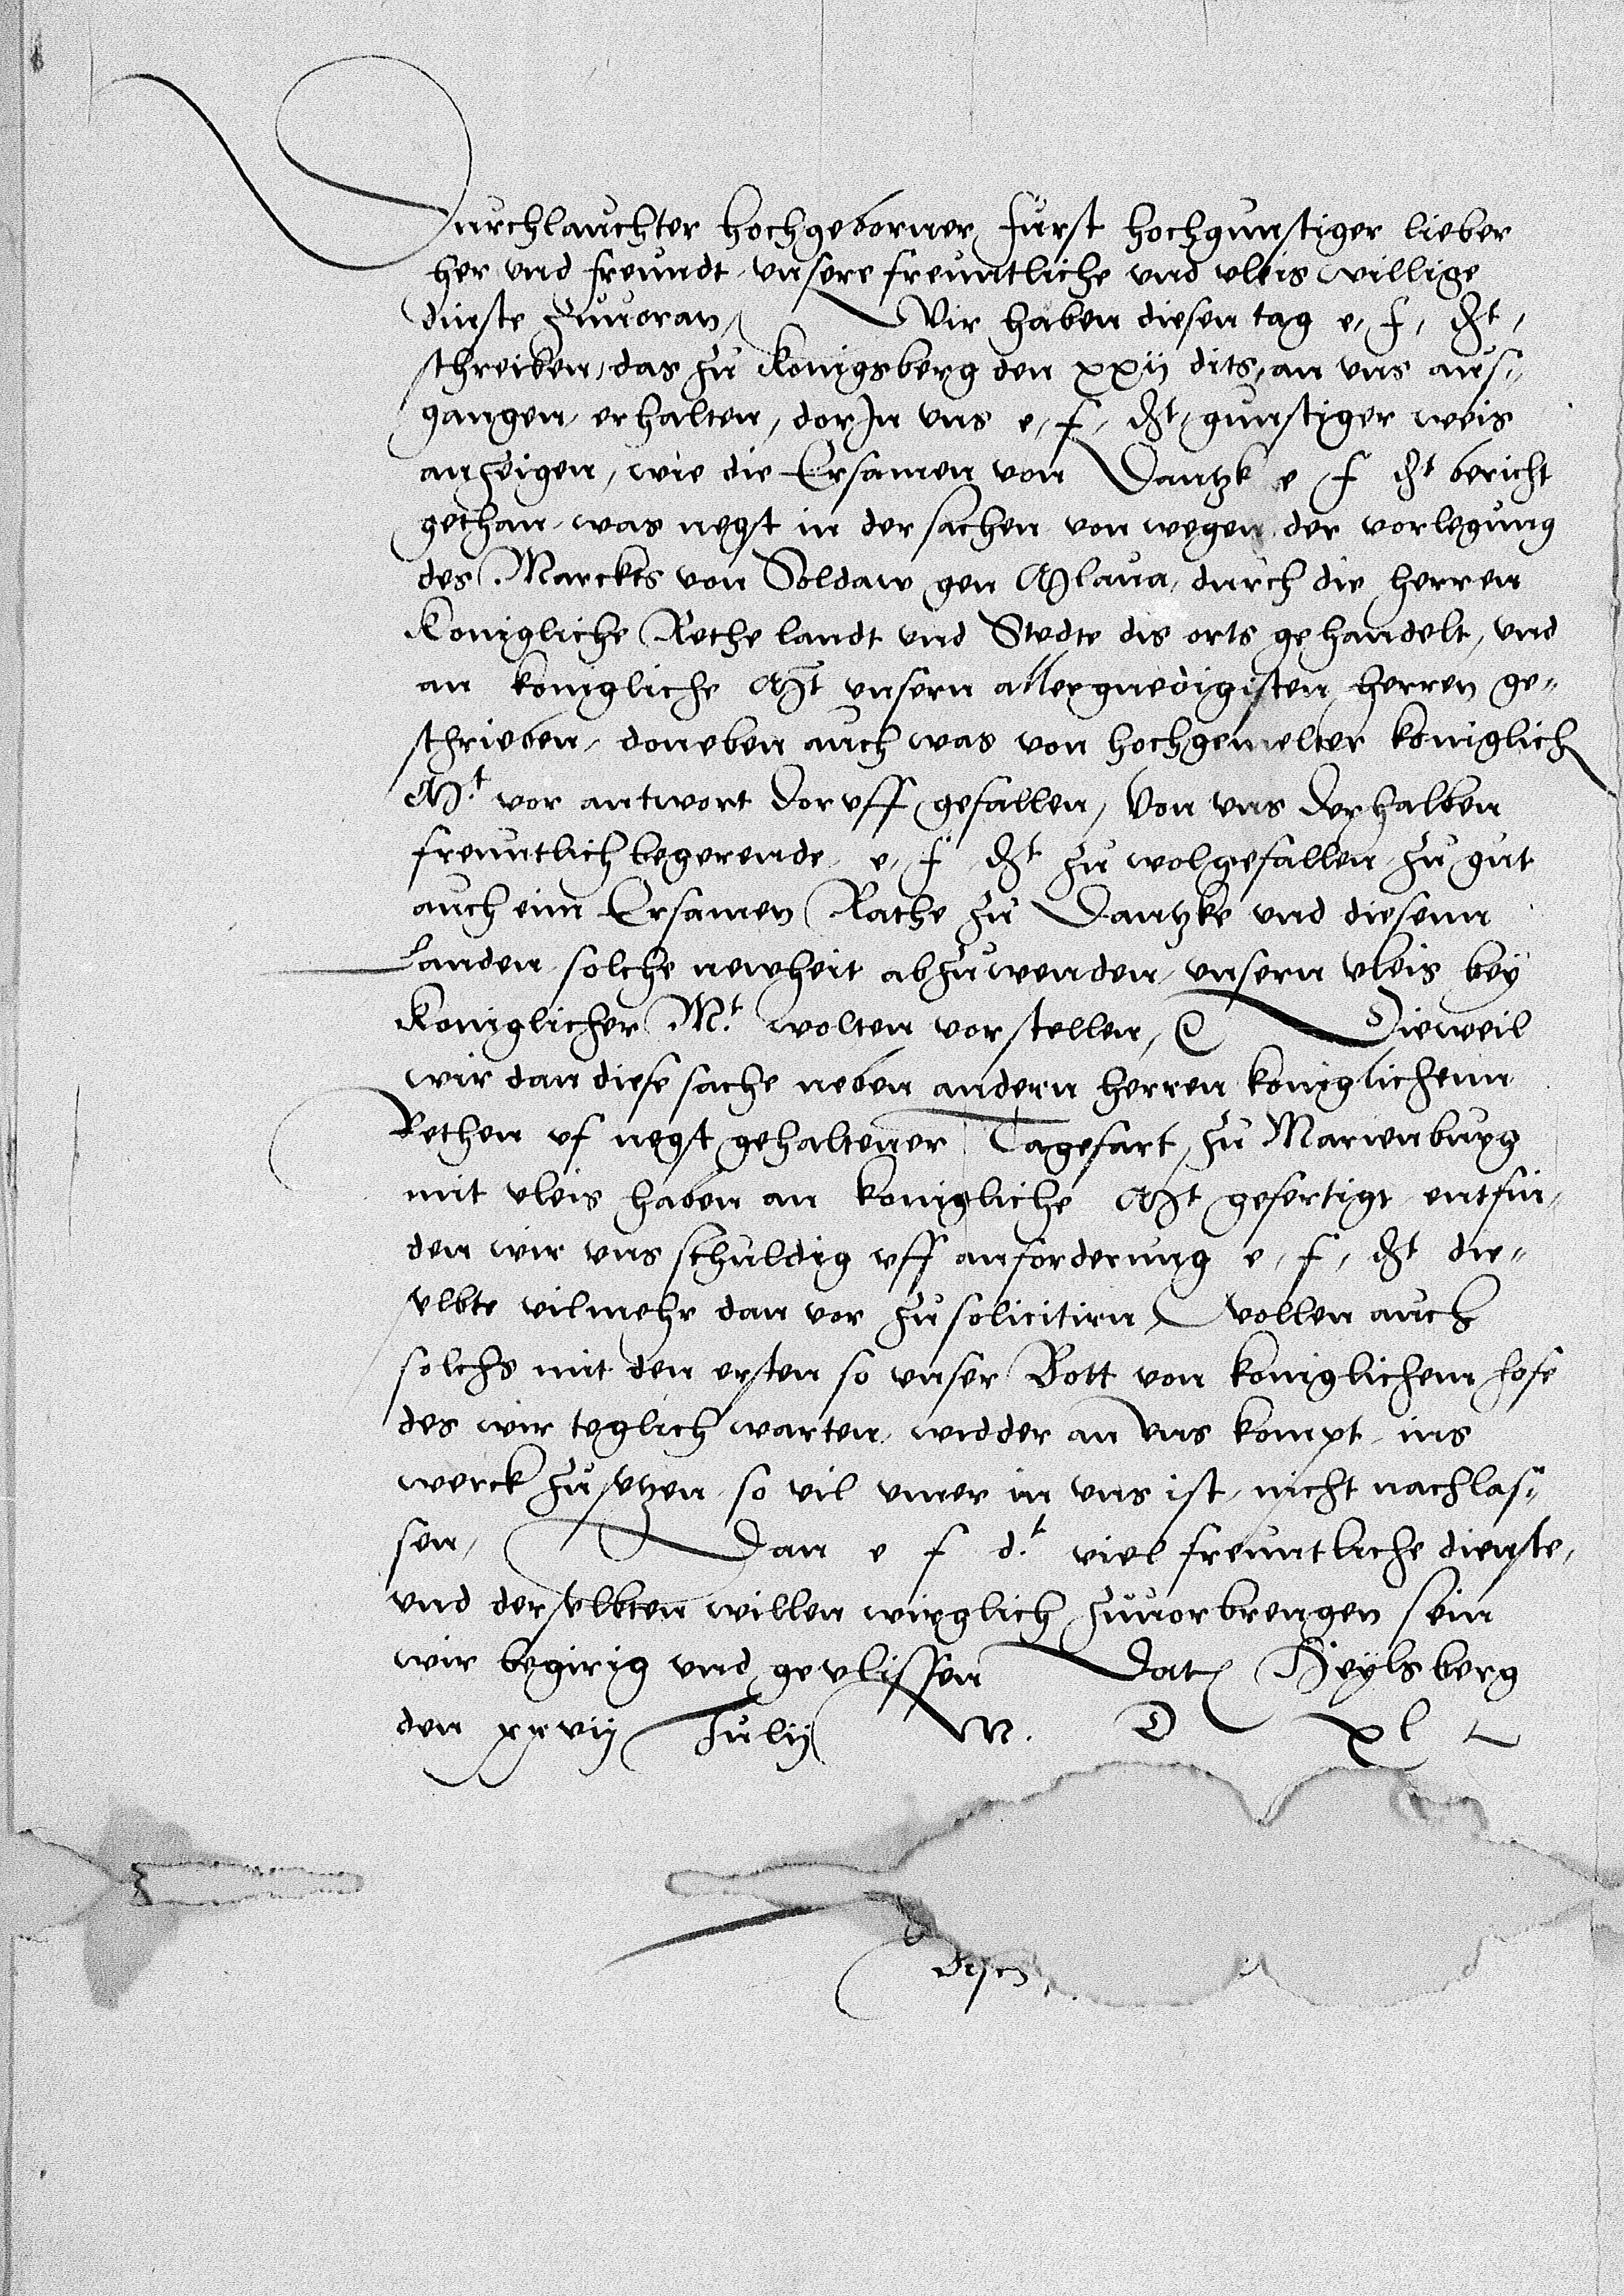 Durchlauchter hochgeborner furst hochgunstiger lieber
her vnd freundt, vnsere freuntliche vnd vleis willige
dinste zuuoran, Wir haben diesen tag e, f, dt,
schreiben, das zu Konigsberg den xxij dits, an vns aus„
gangen, erhalten, dorJn vns e, f, dt, gunstiger weis
anzeigen, wie die Ersamen von Dantzk e f dt bericht
gethan, was negst in der sachen von wegen der vorlegung
des Marckts von Soldaw gen Mlaua, durch die herren
Konigliche Rethe landt vnd Stedte dis orts gehandelt, vnd
an konigliche Mt vnsern allergnedigisten herren ge„
schrieben, doneben auch was von hochgemelter koniglich
Mt. vor antwort doruff gefallen, Von vns derhalben
freuntlich begerende, e, f dt zu wolgefallen, zu gut
auch eim Ersamen Rathe zu Dantzke vnd diesenn
Landen, solche newheit abzuwenden, vnsern vleis bey
Koniglicher Mt. wolten vorstellen, Dieweil
wir dan diese sache neben andern herren koniglichenn
Rethen vf negst gehaltener Tagefart, zu Marienburg
mit vleis haben an konigliche Mt gefertigt entfin„
den wir vns schuldig vff anforderung e, f, dt die„
selbte vilmehr dan vor zu solicitirn, Wollen auch
solchs mit den ersten so vnser Bott von koniglichem hofe
des wir teglich warten, widder an vns kompt, ins
werck zu setzen, so vil vmer in vns ist, nicht nachlas„
sen, Dan e f dt. viel freuntliche dienste,
vnd derselbten willen wirglich zuuorbrengen sein
wir begirig vnd gevlissen Dat Heylsberg
den xxvij Julij M. D xl